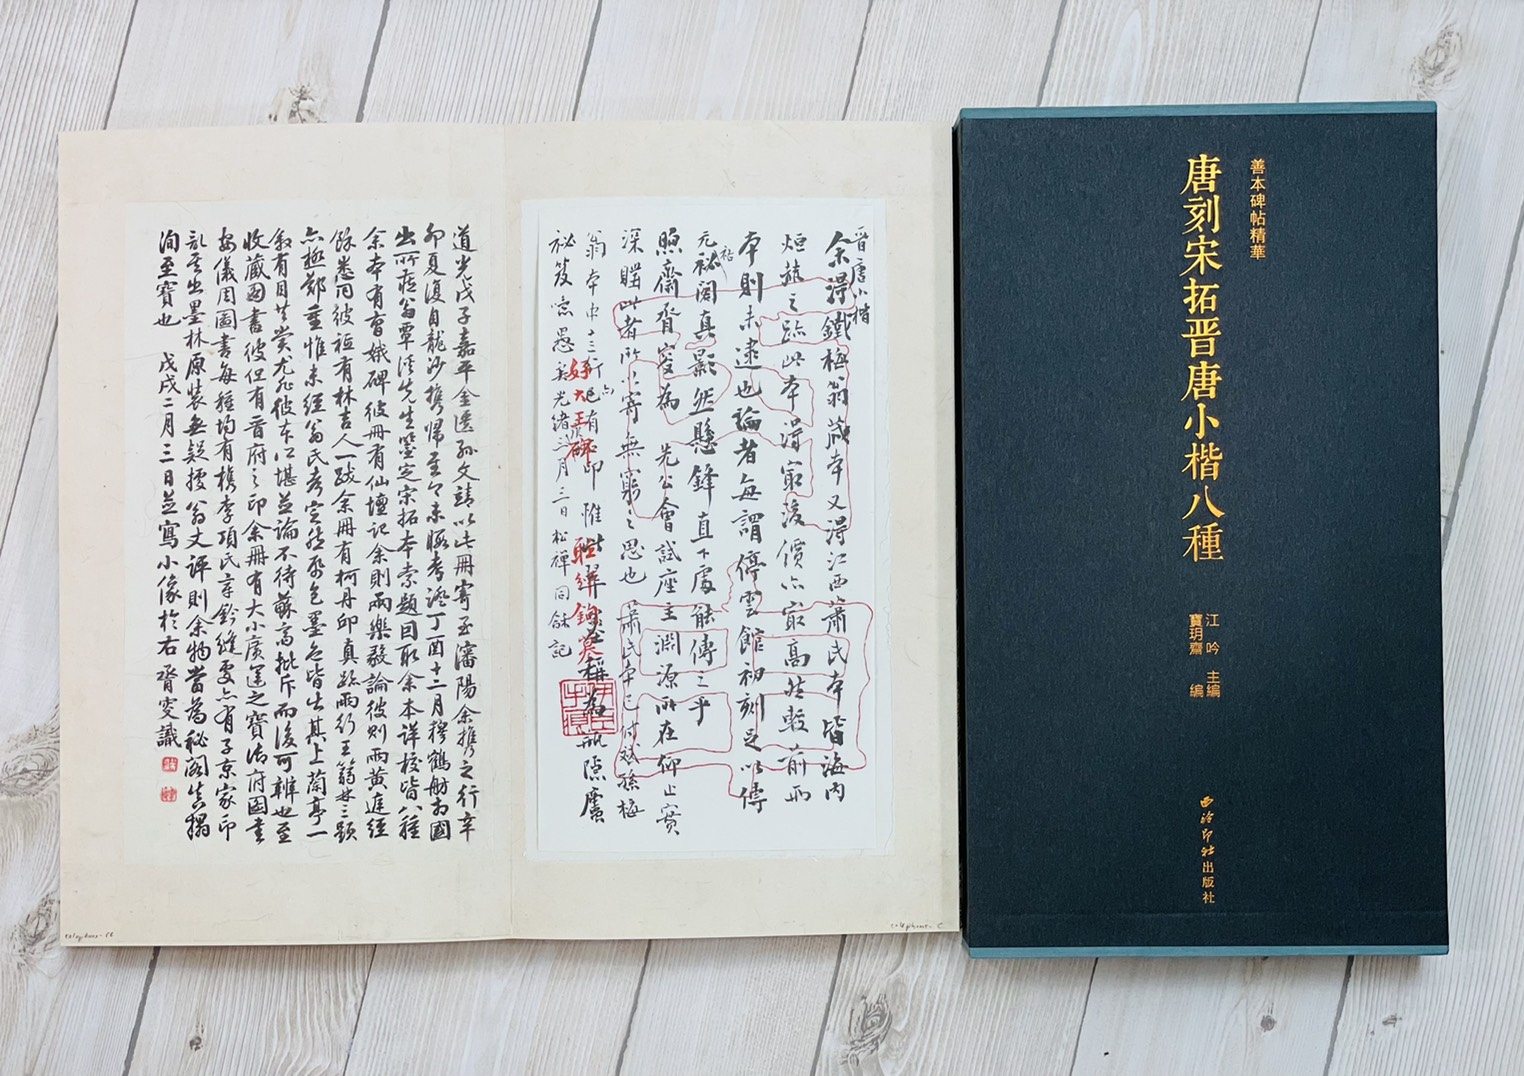 善本碑帖精華
唐刻宋拓晋唐小楷八種
江吟 主編
寶玥齋 編
西泠印社出版社
晋唐小楷
余淂鐵梅翁藏本又淂江西蕭氏本皆海内
烜赫之跡此本淂最後價亦最高然較前兩
本則未逮也論者每謂停雲館初刻足以傳
元祐祕閣真影然懸鋒直下處能傳之乎
照齋胥叜為 先公會試座主淵源所在仰止實
深購此者所以寄無窮之思也 蕭氏本已付斌孫梅
翁本中十三行亦已有 印 惟此 稱為 瓶隱廬
祕笈 光緒 月三日松禪同龢記
好大王碑
道光戊子嘉平金匱孫文靖以此冊寄至瀋陽余攜之行辛
卯夏復自龍沙攜歸至今未暇考證丁酉十二月穆鶴舫相國
出所藏翁覃溪先生鑒定宋拓本索題因取余本詳校皆八種
余本有曹娥碑彼冊有仙壇記余則兩樂毅論彼則兩黄庭經
餘悉同彼冊有林吉人一跋余冊有柯丹邱真跡兩行王 三題
亦極鄭重惟未經翁氏考定然 色墨色皆出其上蘭亭一
敘有目共賞尤非彼本 堪並論不待蘇高批斥而後可辨也至
收藏圖書彼但有晋府之印余冊有大小廣運之寶內府圖書
安儀周圖書每種均有檇李項氏 鈐縫處亦有子京家印
出墨林原裝無疑據翁丈評則余物當為秘閣真搨
洵至寶也 戊戌二月三日並寫小像於右 胥叜識
colophons-
colophons-